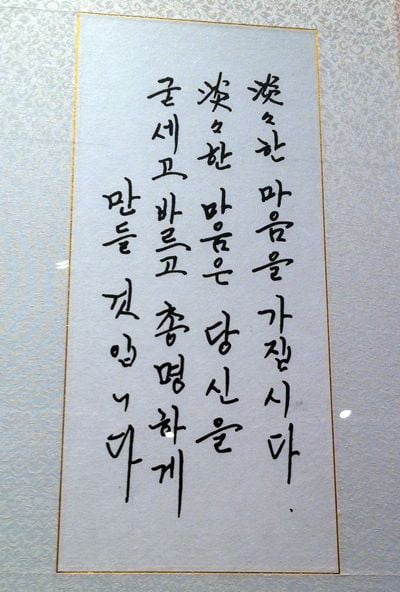 淡々한 마음을 가집시다.
淡々한 마음은 당신을
굳세고 바르고 총명하게
만들 것입니다